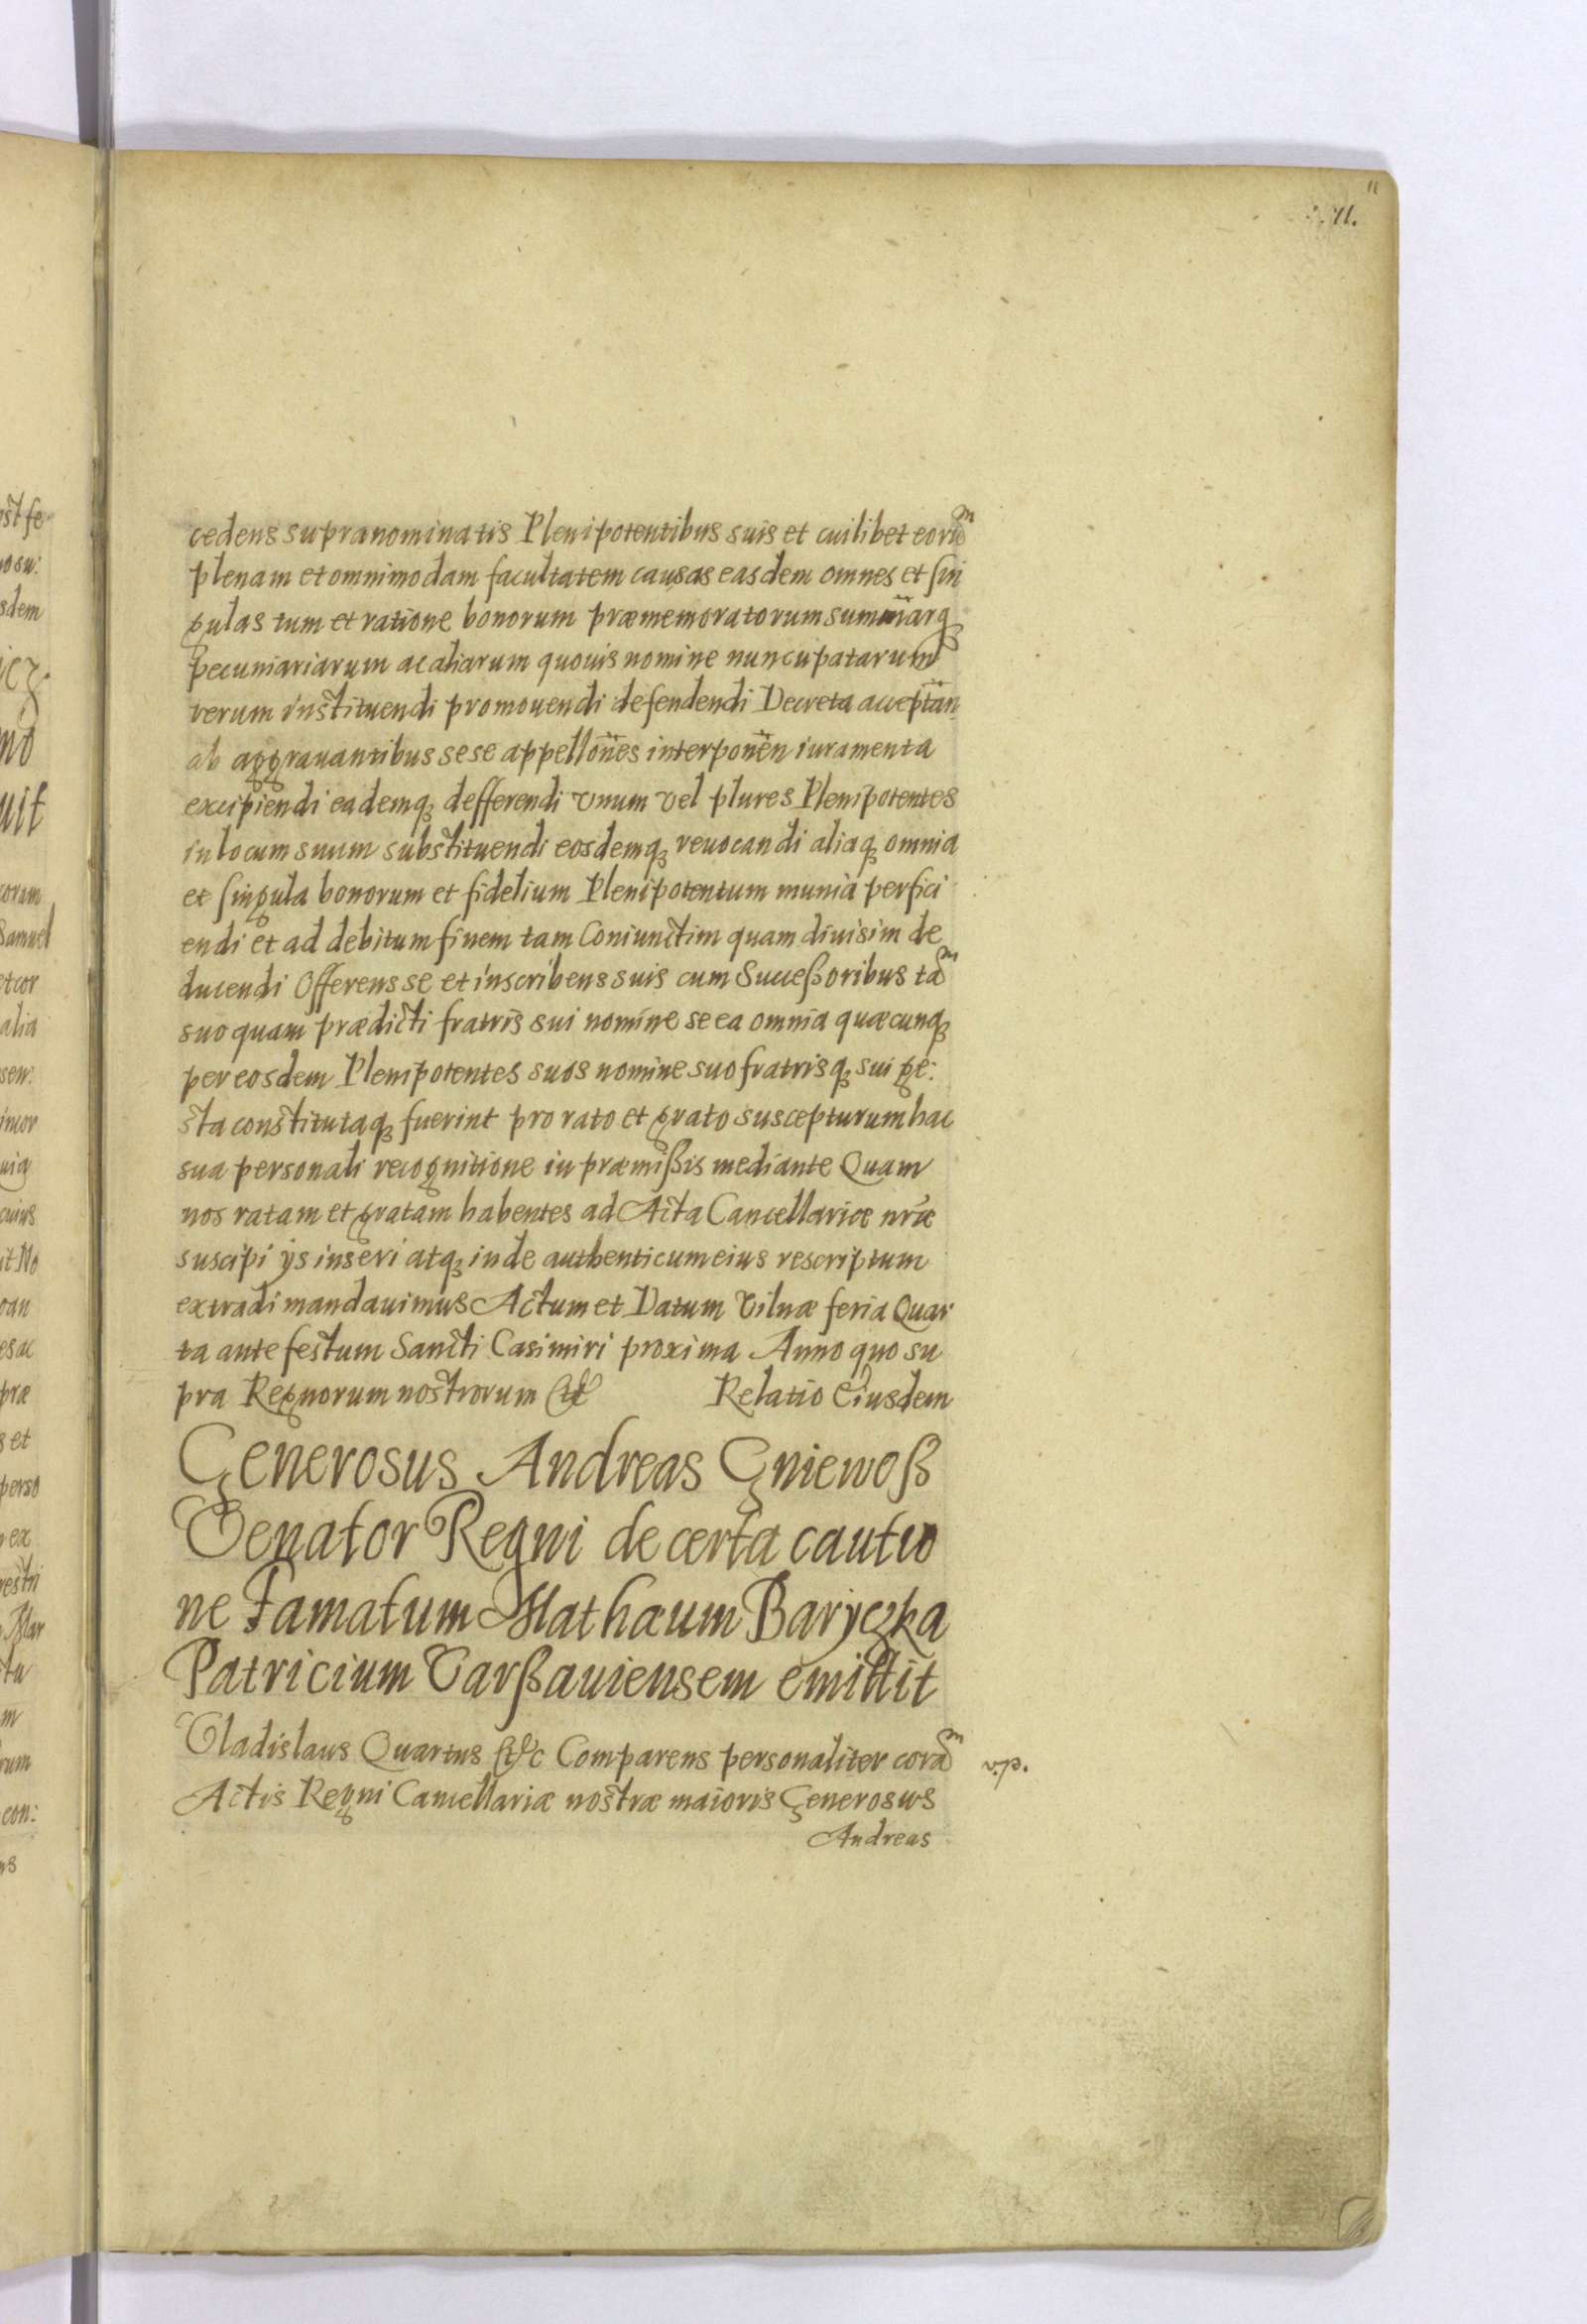 11
11.
cedens supranominatis Plenipotentibus suis et cuilibet eorũm
plenam et omnimodam facultatem causas easdem omnes et sin
gulas tum et ratione bonorum præmemoratorum summarq
pecuniariarum ac aliarum quouis nomine nuncupatarum
rerum instituendi promouendi defendendi Decreta acceptan
ab aggrauantibus sese appellones interponen iuramenta
excipiendi eademq defferendi vnum vel plures Plenipotentes
in locum suum substituendi eosdemq reuocandi aliaq omnia
et singula bonorum et fidelium Plenipotentum munia perfici
endi et ad debitum finem tam Coniunctim quam diuisim de
ducendi Offerens se et inscribens suis cum Succeßoribus tam
suo quam prædicti fratris sui nomine se ea omnia quæcunq
per eosdem Plenipotentes suos nomine suo fratrisq sui ge:
sta constitutaq fuerint pro rato et grato suscepturum hac
sua personali recognitione in præmißis mediante Quam
nos ratam et gratam habentes ad Acta Cancellariæ nræ
suscipi ijs inseri atq inde authenticum eius rescriptum
extradi mandauimus Actum et Datum Vilnæ feria Quar
ta ante festum Sancti Casimiri proxima Anno quo su
pra Regnorum nostrorum etc Relatio Eiusdem
Generosus Andreas Gniewoß
Venator Regni de certa cautio
ne Famatum Mathæum Baryczka
Patricium Varßauiensem emittit
Vladislaus Quartus etc Comparens personaliter coram
v.p.
Actis Regni Cancellariæ nostræ maioris Generosus
Andreas